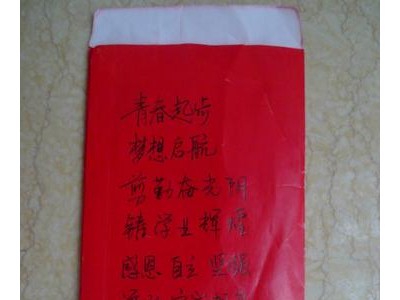 青春起步
梦想启航
剪勤奋光阴
铸学业辉煌
感恩 自主 坚强